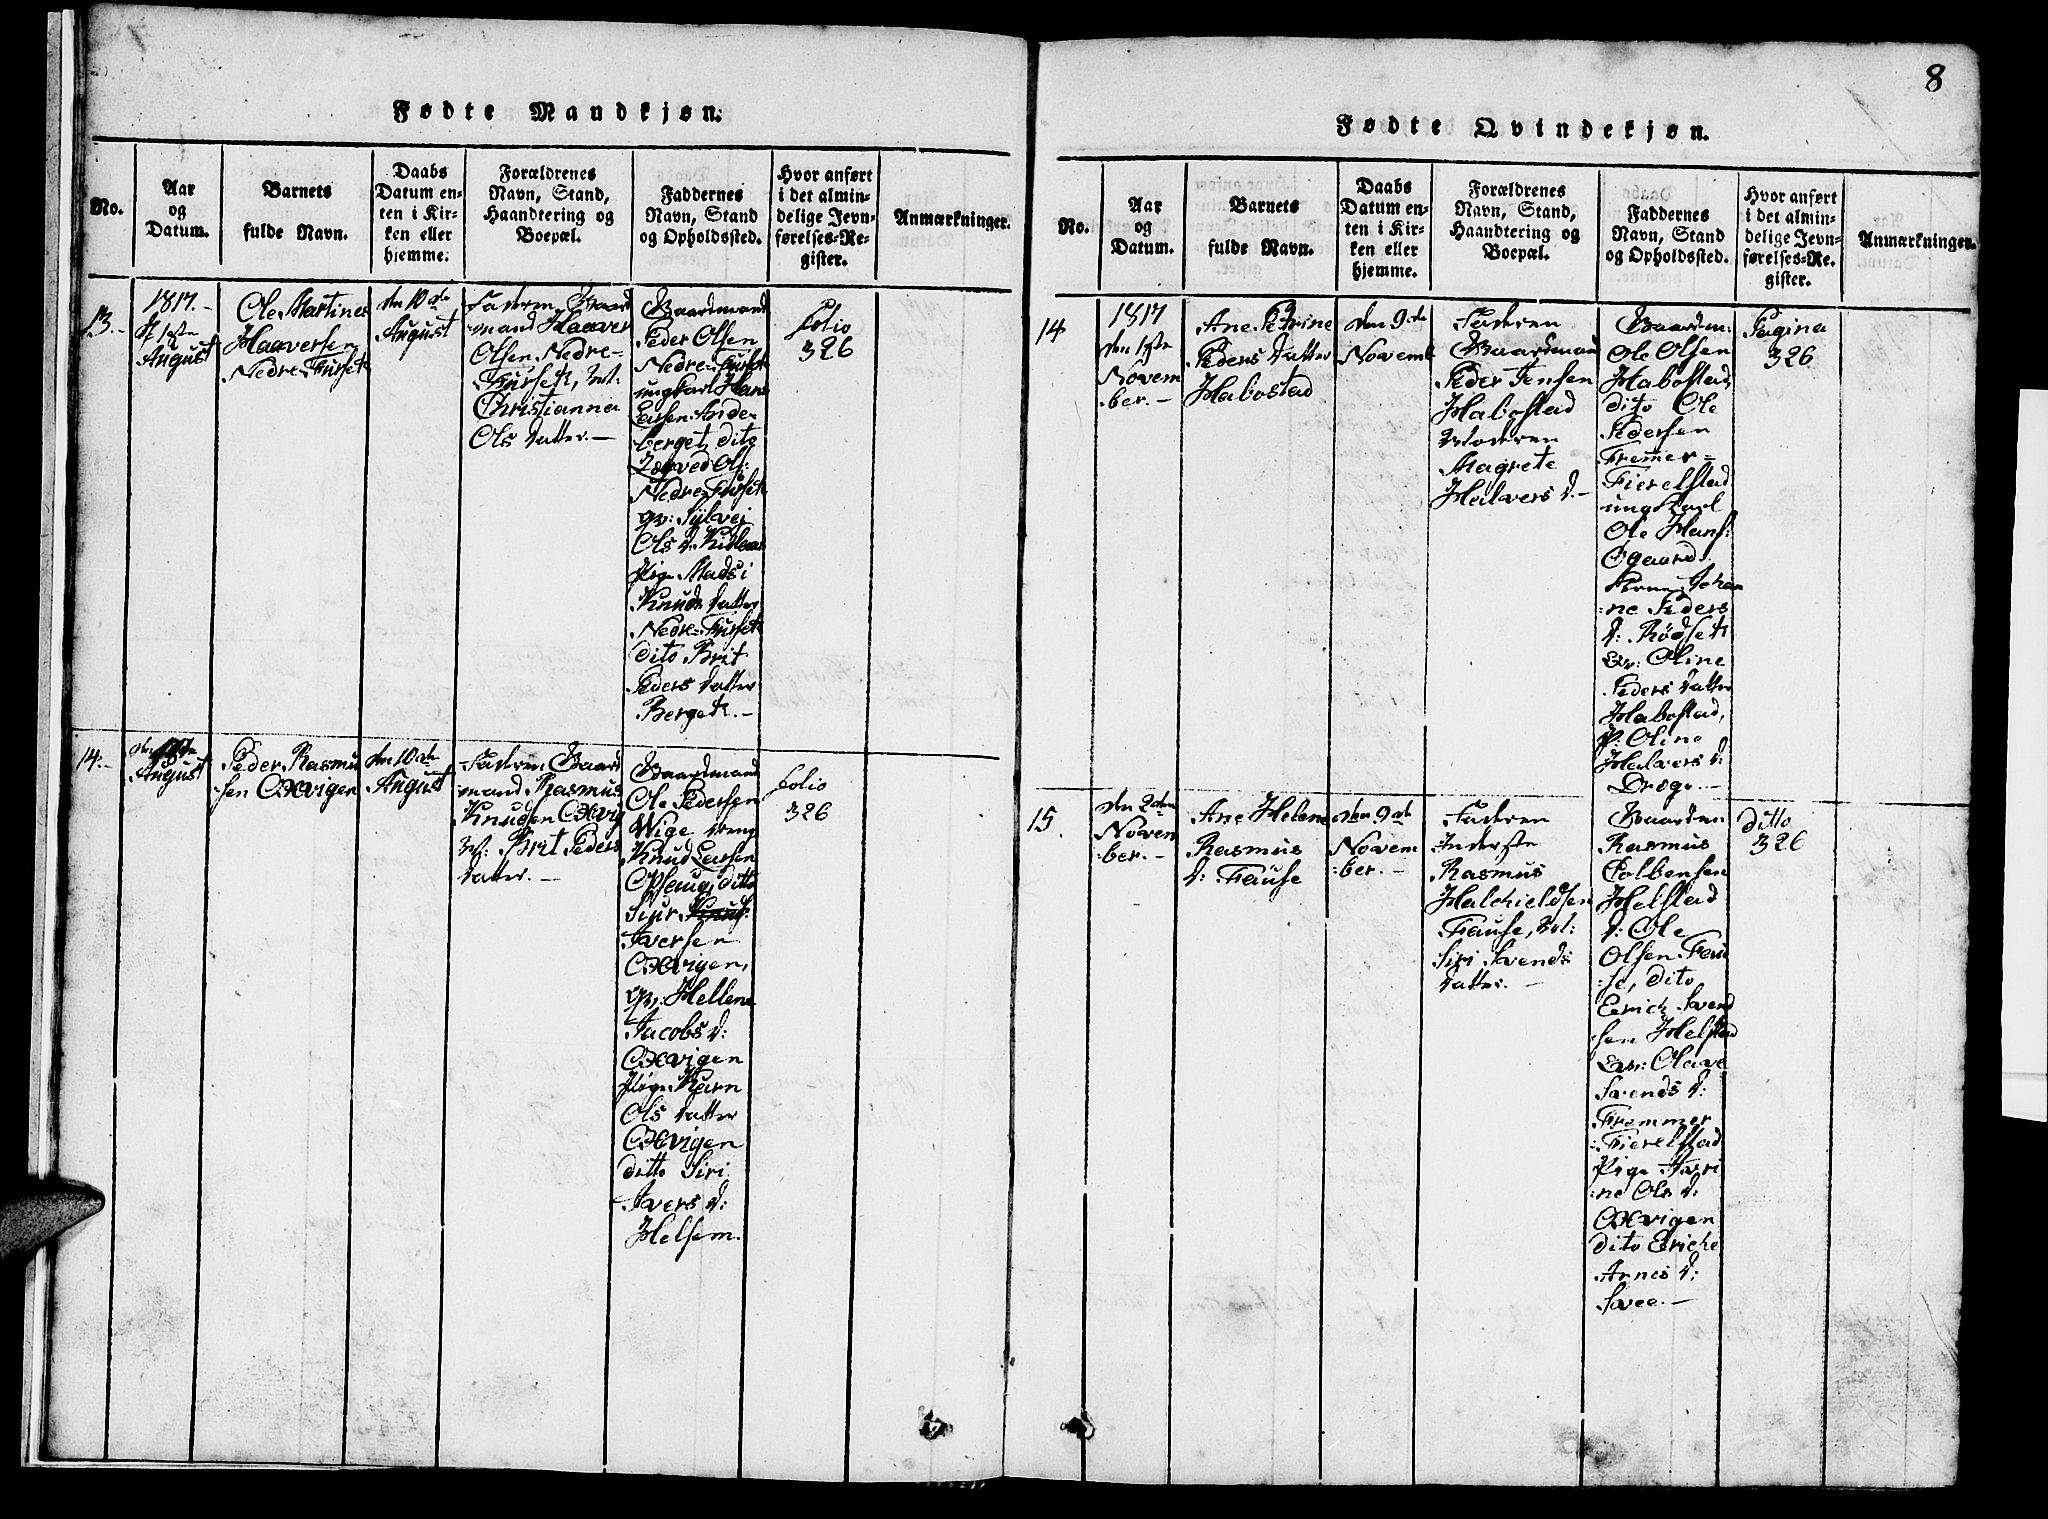 8
Fødte Mandkjøn.
No.
Aar
og
Datum.
Barnets
fulde Navn.
Daabs
Datum en-
ten i Kir-
ken eller
hjemme.
Forældrenes
Navn, Stand,
Haandtering og
Boepæl.
Faddernes
Navn, Stand
og Opholdssted.
Hvor anført
i det almin-
delige Jevn-
førelses-Re-
gister.
Anmærkninger.
13.-
1817.-
August
Ole Martines
Haaversen
Nedre-Furseth
den 10de
August
Faderen Gaard
mand Haaver
Olsen Nedre-
Furseth, M:
Christianna
Ols Datter.-
Gaardmand
Peder Olsen
Nedre-Furset
ungkarl Hans
Larsen Ande-
berget, dito
Ols:
Nedre-Furseth
qv: Sÿlvej
Ols d:
Pige Madsi
Knuds Datter
Nedre-Furseth
dito Brit
Peders Datter
Bergeth.-
Folio
326
14.-
August
Peder Rasmu
sen Oxvigen
den 10de
August
Faderen Gaard
mand Rasmus
Knudsen Oxvig
M: Brit Peders
Datter.-
Gaardmand
Ole Pedersen
Wige dreng
Knud Larsen
Ophaug, ditto
Siur
Iversen
Oxvigen,
qv: Hellene
Jacobs d:
Oxvigen
Pige Karn
Ols Datter
Oxvigen
ditto Siri
Ivers d:
Helsem.
Folio
326
Fødte Qvindekjøn.
No.
Aar
og
Datum.
Barnets
fulde Navn.
Daabs
Datum en-
ten i Kir-
ken eller
hjemme.
Forældrenes
Navn, Stand,
Haandtering og
Boepæl.
Faddernes
Navn, Stand
og Opholdssted.
Hvor anført
i det almin-
delige Jevn-
førelses-Re-
gister.
Anmærkninger.
14
1817
den 1ste
Novem
:ber.-
Ane Petrine
Peders Datter
Habostad
den 9de
Novemb
Faderen
Gaardman
Peder Jensen
Habostad
Moderen
Magrete
Halvers d.-
Gaardm:
Ole Olsen
Habostad,
dito Ole
Pedersen
Fremer-
Fierelstad
ungkarl
Ole Hans:
Øgaard.
Kone Johan
:ne Peders
d: Rødseth
Qv: Oline
Peders Datter
Habostad,
p: Oline
Halvers d:
Drøge.-
Pagina
326
15.
den 2den
Novem
:ber.-
Ane Helene
Rasmus
d: Fause
den 9de
Novem
:ber.-
Faderen
Inderste
Rasmus
Halchieldsen
Fause, M:
Siri Svends
Datter.-
Gaardm
Rasmus
Colbensen
Helstad
d: Ole
Olsen Fau
:se, dito
Erich Svend
sen Helstad
Qv: Olave
Svends d:
Fremmer
:Fierelstad
Pige Iveri
:ne Ols d:
Oxvigen
dito Eriche
Arnes d:
Svee.-
Ditto
326